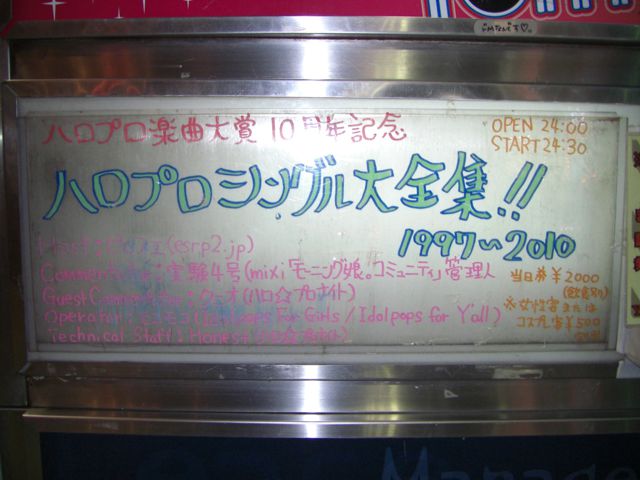 ハロプロ楽曲大賞 10周年記念
OPEN 24:00
START 24:30
ハロプロシングル大全集!!
1997〜2010
Host: (esrp2.jp)
Commentator: 実験4号(mixi「モーニング娘。コミュニティ」管理人
Guest Commentator: (ハロ☆プロナイト)
Operator: (Idolpops For Girls / Idolpops for Y'all)
Technical Staff: Honest
当日券 ¥2000
(飲食別)
※女性客または
コスプレ客¥500